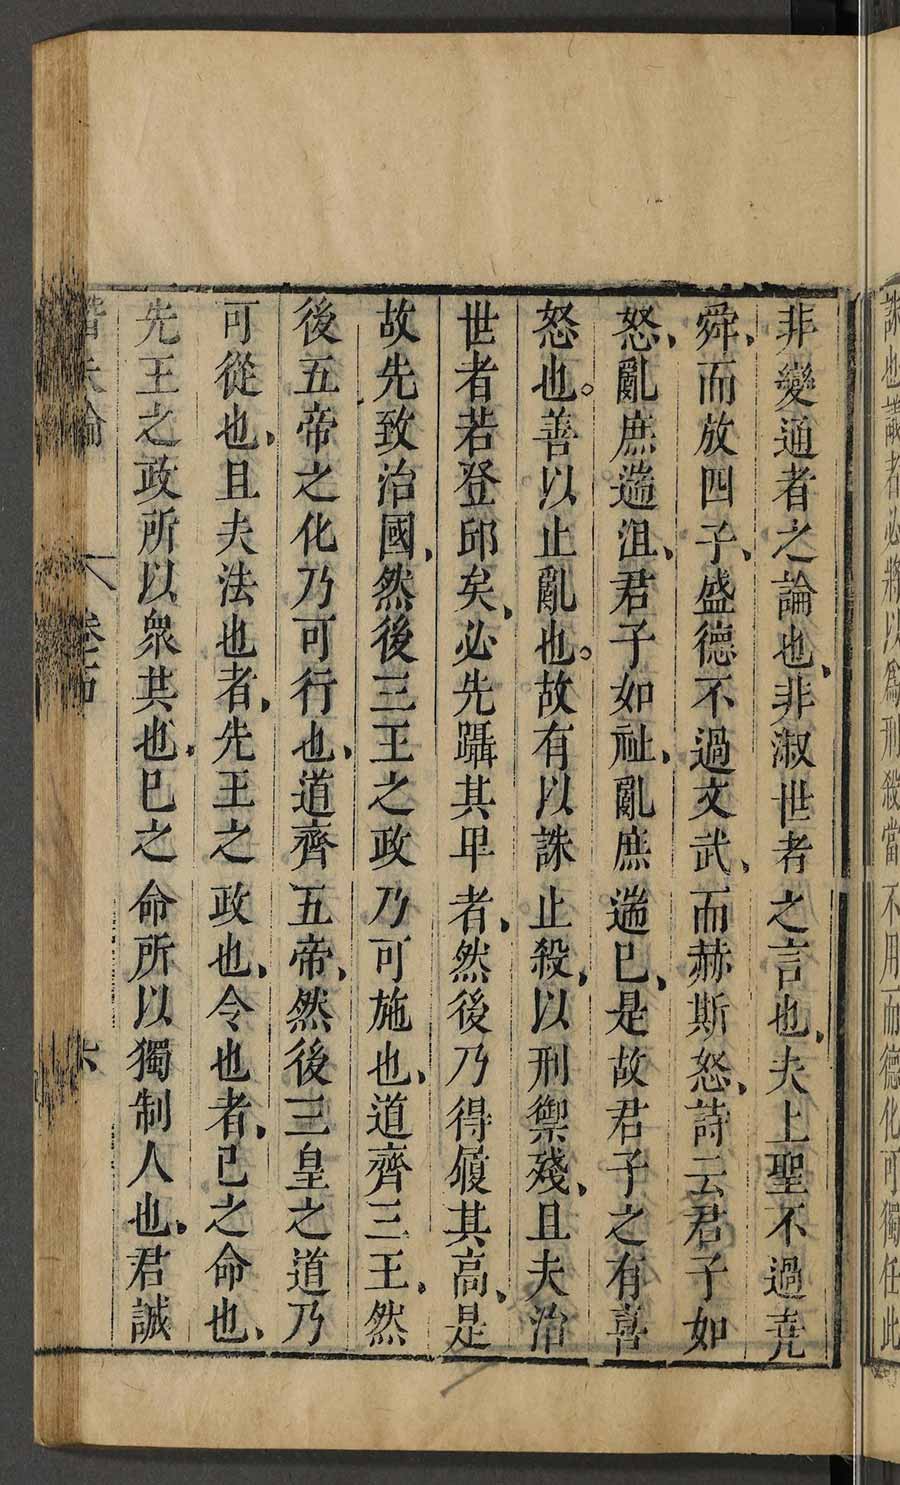 誅也議者必將以爲刑殺當不用而德化可獨任此
非變通者之論也、非淑世者之言也、夫上聖不過堯
舜、而放四子、盛德不過文武、而赫斯怒、詩云君子如
怒、亂庶遄沮、君子如祉、亂庶遄已、是故君子之有喜
怒也。善以止亂也。故有以誅止殺、以刑禦殘、且夫治
世者若登邱矣、必先躡其卑者、然後乃得履其高、是
故先致治國、然後三王之政乃可施也、道齊三王、然
後五帝之化乃可行也、道齊五帝、然後三皇之道乃
可從也、且夫法也者、先王之政也、令也者、己之命也、
先王之政所以衆共也、已之命所以獨制人也、君誠
論